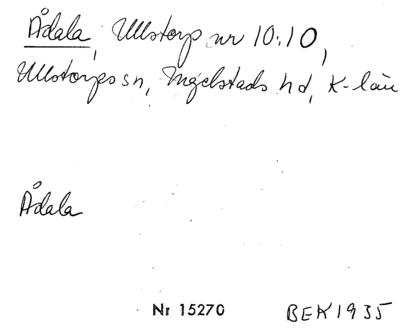 Ådala, Ullstorp nr 10:10,
Ullstorps sn, Ingelstads hd, K-län
Ådala
Nr 15270 BEK1935